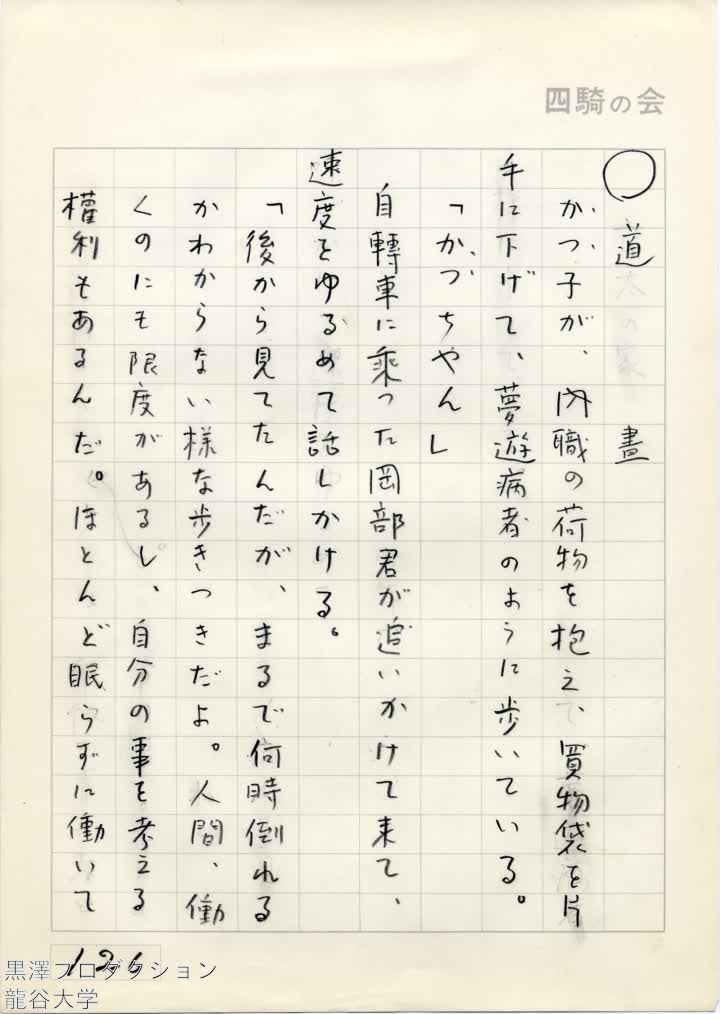 四騎の会
○道　　　晝
かつ子が、内職の荷物を抱え、買物袋を片
手に下げて、夢遊病者のように歩いている。
「かつちやん」
自轉車に乘った岡部君が追いかけて来て、
速度をゆるめて話しかける。
「後から見てたんだが、まるで何時倒れる
かわからない様な歩きつきだよ。人間、働
くのにも限度があるし、自分の事を考える
權利もあるんだ。ほとんど眠らずに働いて
126
黒澤プロダクション
龍谷大学